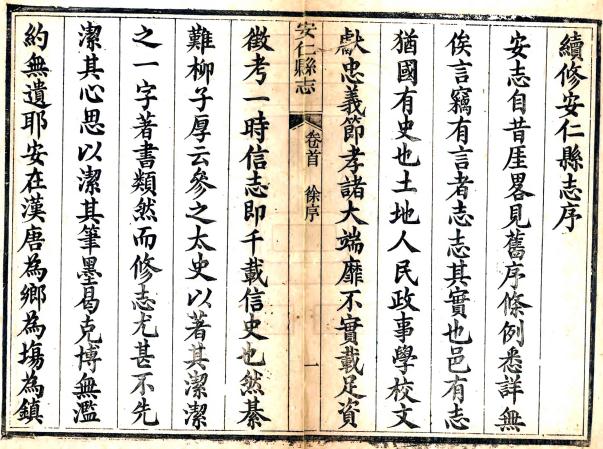 續修安仁縣志序
安志自昔厓畧見舊序條例悉詳無
俟言竊有言者志志其實也邑有志
猶國有史也土地人民政事學校文
獻忠義節孝諸大端靡不實載足資
安仁縣志
卷首
徐序
一
徵考一時信志即千載信史也然綦
難柳子厚云參之太史以著其潔潔
之一字著書類然而修志尤甚不先
潔其心思以潔其筆墨曷克博無濫
約無遺耶安在漢唐為鄉為塲為鎮